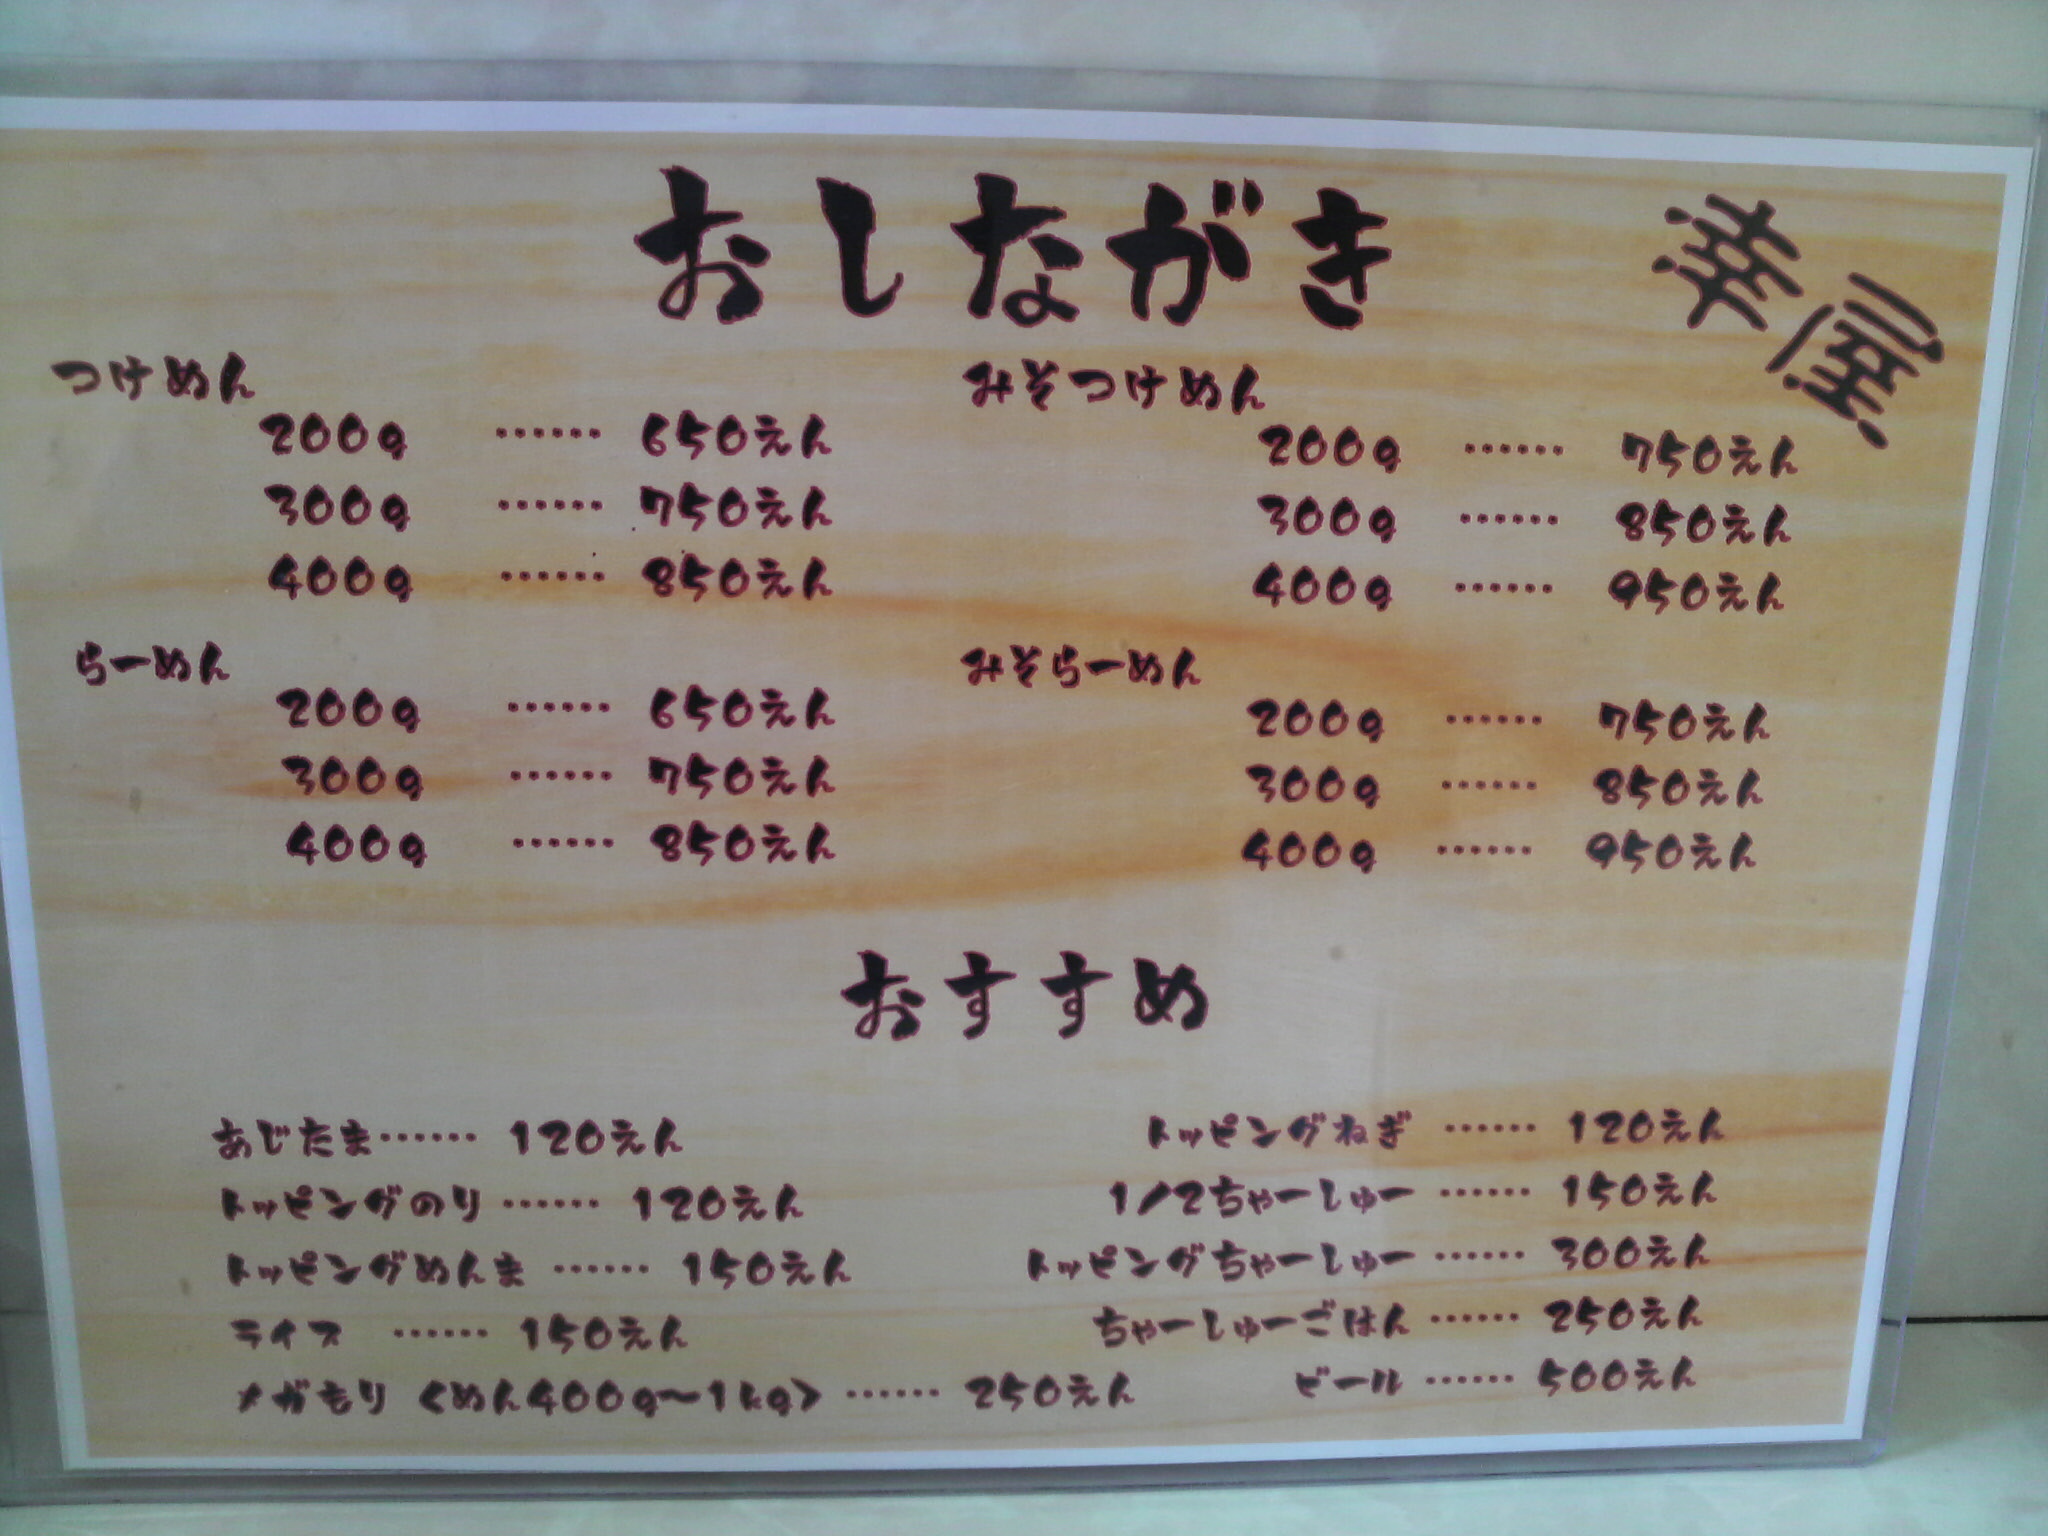 おしながき
幸屋
つけめん
200g …… 650えん
300g …… 750えん
400g …… 850えん
みそつけめん
200g …… 750えん
300g …… 850えん
400g …… 950えん
らーめん
200g …… 650えん
300g …… 750えん
400g …… 850えん
みそらーめん
200g …… 750えん
300g …… 850えん
400g …… 950えん
おすすめ
あじたま…… 120えん
トッピングのり …… 120えん
トッピングめんま …… 150えん
ライス …… 150えん
メガもり <めん400g～1kg> …… 250えん
トッピングねぎ …… 120えん
1/2ちゃーしゅー …… 150えん
トッピングちゃーしゅー …… 300えん
ちゃーしゅーごはん …… 250えん
ビール …… 500えん